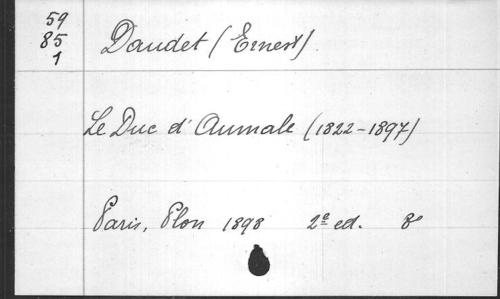 59
85
1
Daudet (Ernest)
Le Duc d'Aumale (1822-1897)
Paris, Plon 1898 2e ed. 8o